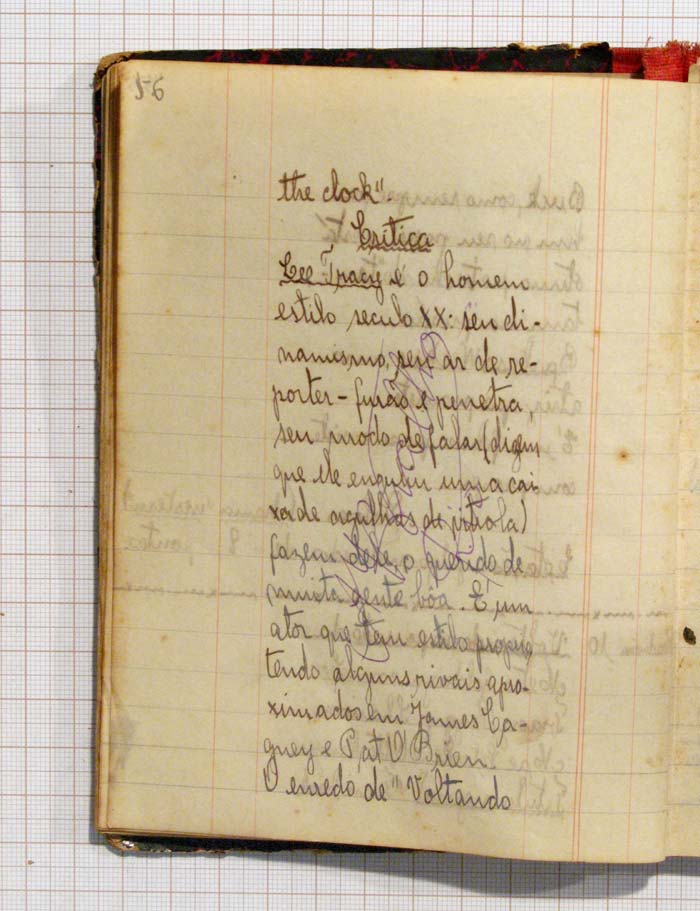 56
the clock".
Critica
Lee Tracy é o homem
estilo seculo XX: seu di-
namismo, seu ar de re-
porter-furão e penetra,
seu modo de falar (dizem
que ele enguliu uma cai-
xa de agulhas de vitrola)
fazem dele, o querido de
muita gente bôa. É um
ator que tem estilo proprio
tendo alguns rivais apro-
ximados em James Ca-
gney e Pat O'Brien.
O enredo de "Voltando